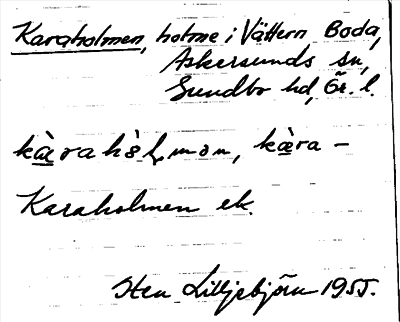 Karaholmen, holme i Vättern Boda,
Askersunds sn,
Sundbo hd, Ör. l.
kæ̀rahòl̥mən, kæ̀ra –
Karaholmen ek.
Sten Lilljebjörn 1955.